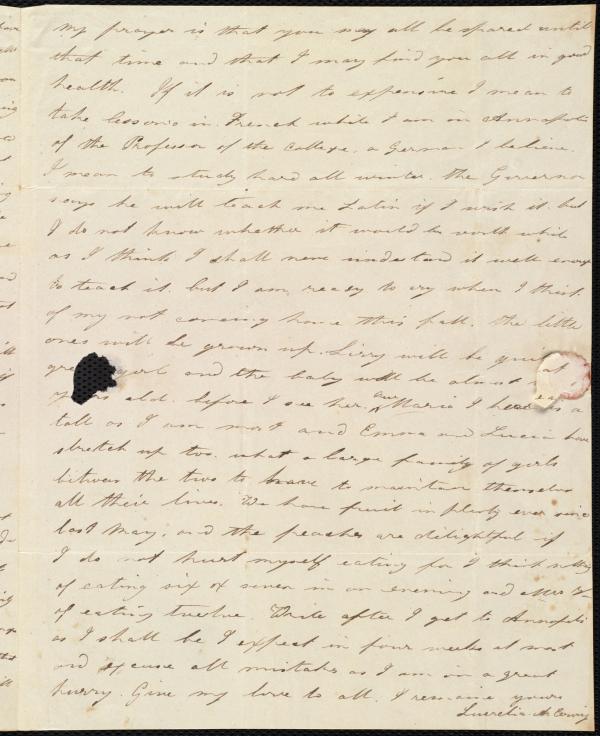 My prayer is that you may all be spared until
that time and that I may find you all in good
health. If it is not to expensive I mean to
take lessons in French while I am in Annapolis
of the Professor of the College, a German I believe.
I mean to study hard all winter. the Governor
says he will teach me Latin if I wish it. but
I do not know whether it would be worth while
as I think I shall never understand it well enough
to teach it. but I am ready to cry when I think
of my not coming home this fall. The little
ones will be grown up. Lizzy will be quite a
great girl and the baby will be almost
years old. before I see her. Maria I hear is a
tall as I am most and Emma and Lucia have
stretch up too. what a large family of girls
between the two to have to maintain themselves
all their lives. We have fruit in plenty ever since
last May, and the peaches are delightful if
I do not hurt myself eating for I think nothing
of eating six or seven in an evening and
of eating twelve. Write after I get to Annapolis
as I shall be I expect in four weeks at most
and excuse all mistakes as I am in a great
hurry. Give my love to all. I remain yours
Lucretia A.